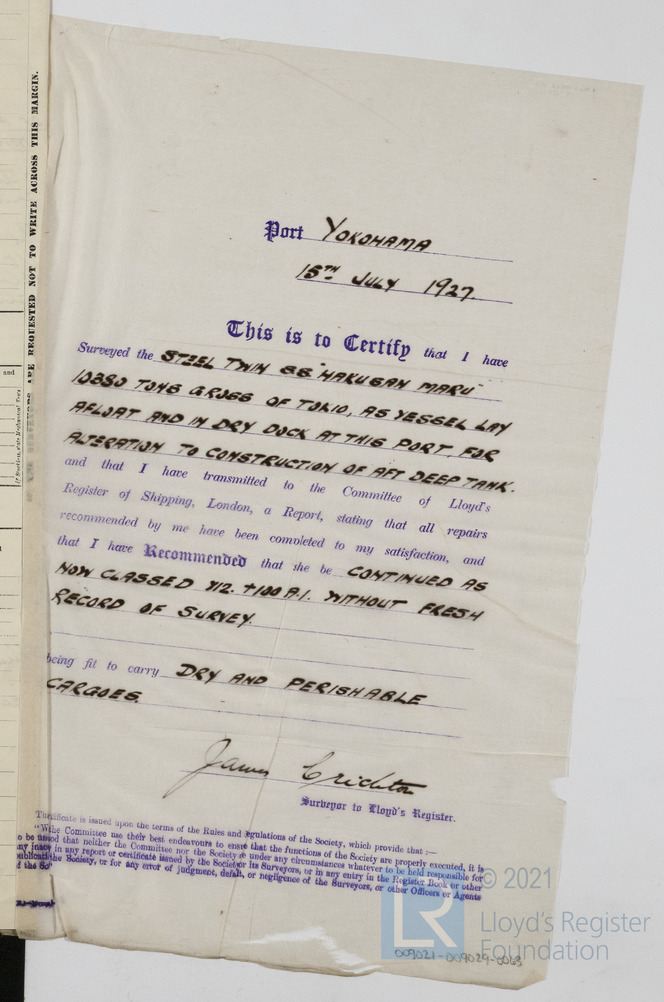 ARE REQUESTED NOT TO WRITE ACROSS THIS MARGIN.
and
Port YOKOHAMA
15TH JULY 1927
This is to Certify that I have
Surveyed the STEEL TWIN SS "HAKUSAN MARU"
10380 TONS GROSS OF TOKIO, AS VESSEL LAY
AFLOAT AND IN DRY DOCK AT THIS PORT FOR
ALTERATION TO CONSTRUCTION OF AFT DEEP TANK.
and that I have transmitted to the Committee of Lloyd's
Register of Shipping, London, a Report, stating that all repairs
recommended by me have been completed to my satisfaction, and
that I have Recommended that she be CONTINUED AS
NOW CLASSED +100 A.1. WITHOUT FRESH
RECORD OF SURVEY.
being fit to carry DRY AND PERISHABLE
CARGOES.
James Crichton
Surveyor to Lloyd's Register.
is issued upon the terms of the Rules and Regulations of the Society, which provide that :—
the Committee use their best endeavours to ensure that the functions of the Society are properly executed, it is
that neither the Committee nor the Society under any circumstances whatever to be held responsible for
in any report or certificate issued by the Society or its Surveyors, or in any entry in the Register Book or other
the Society, or for any error of judgment, default, or negligence of the Surveyors, or other Officers or Agents
© 2021
LR
Lloyd's Register
Foundation
009021-009029-0063